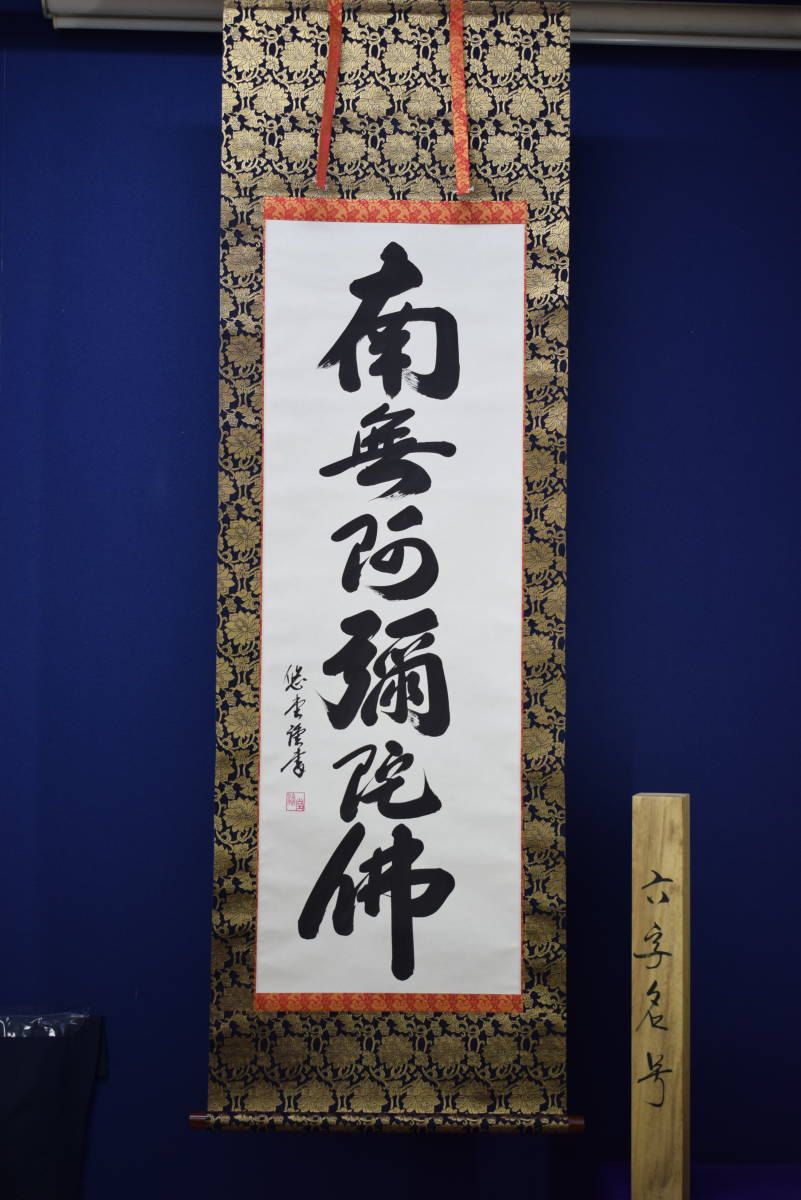 南無阿彌陀佛
悠堂謹書
六字名号